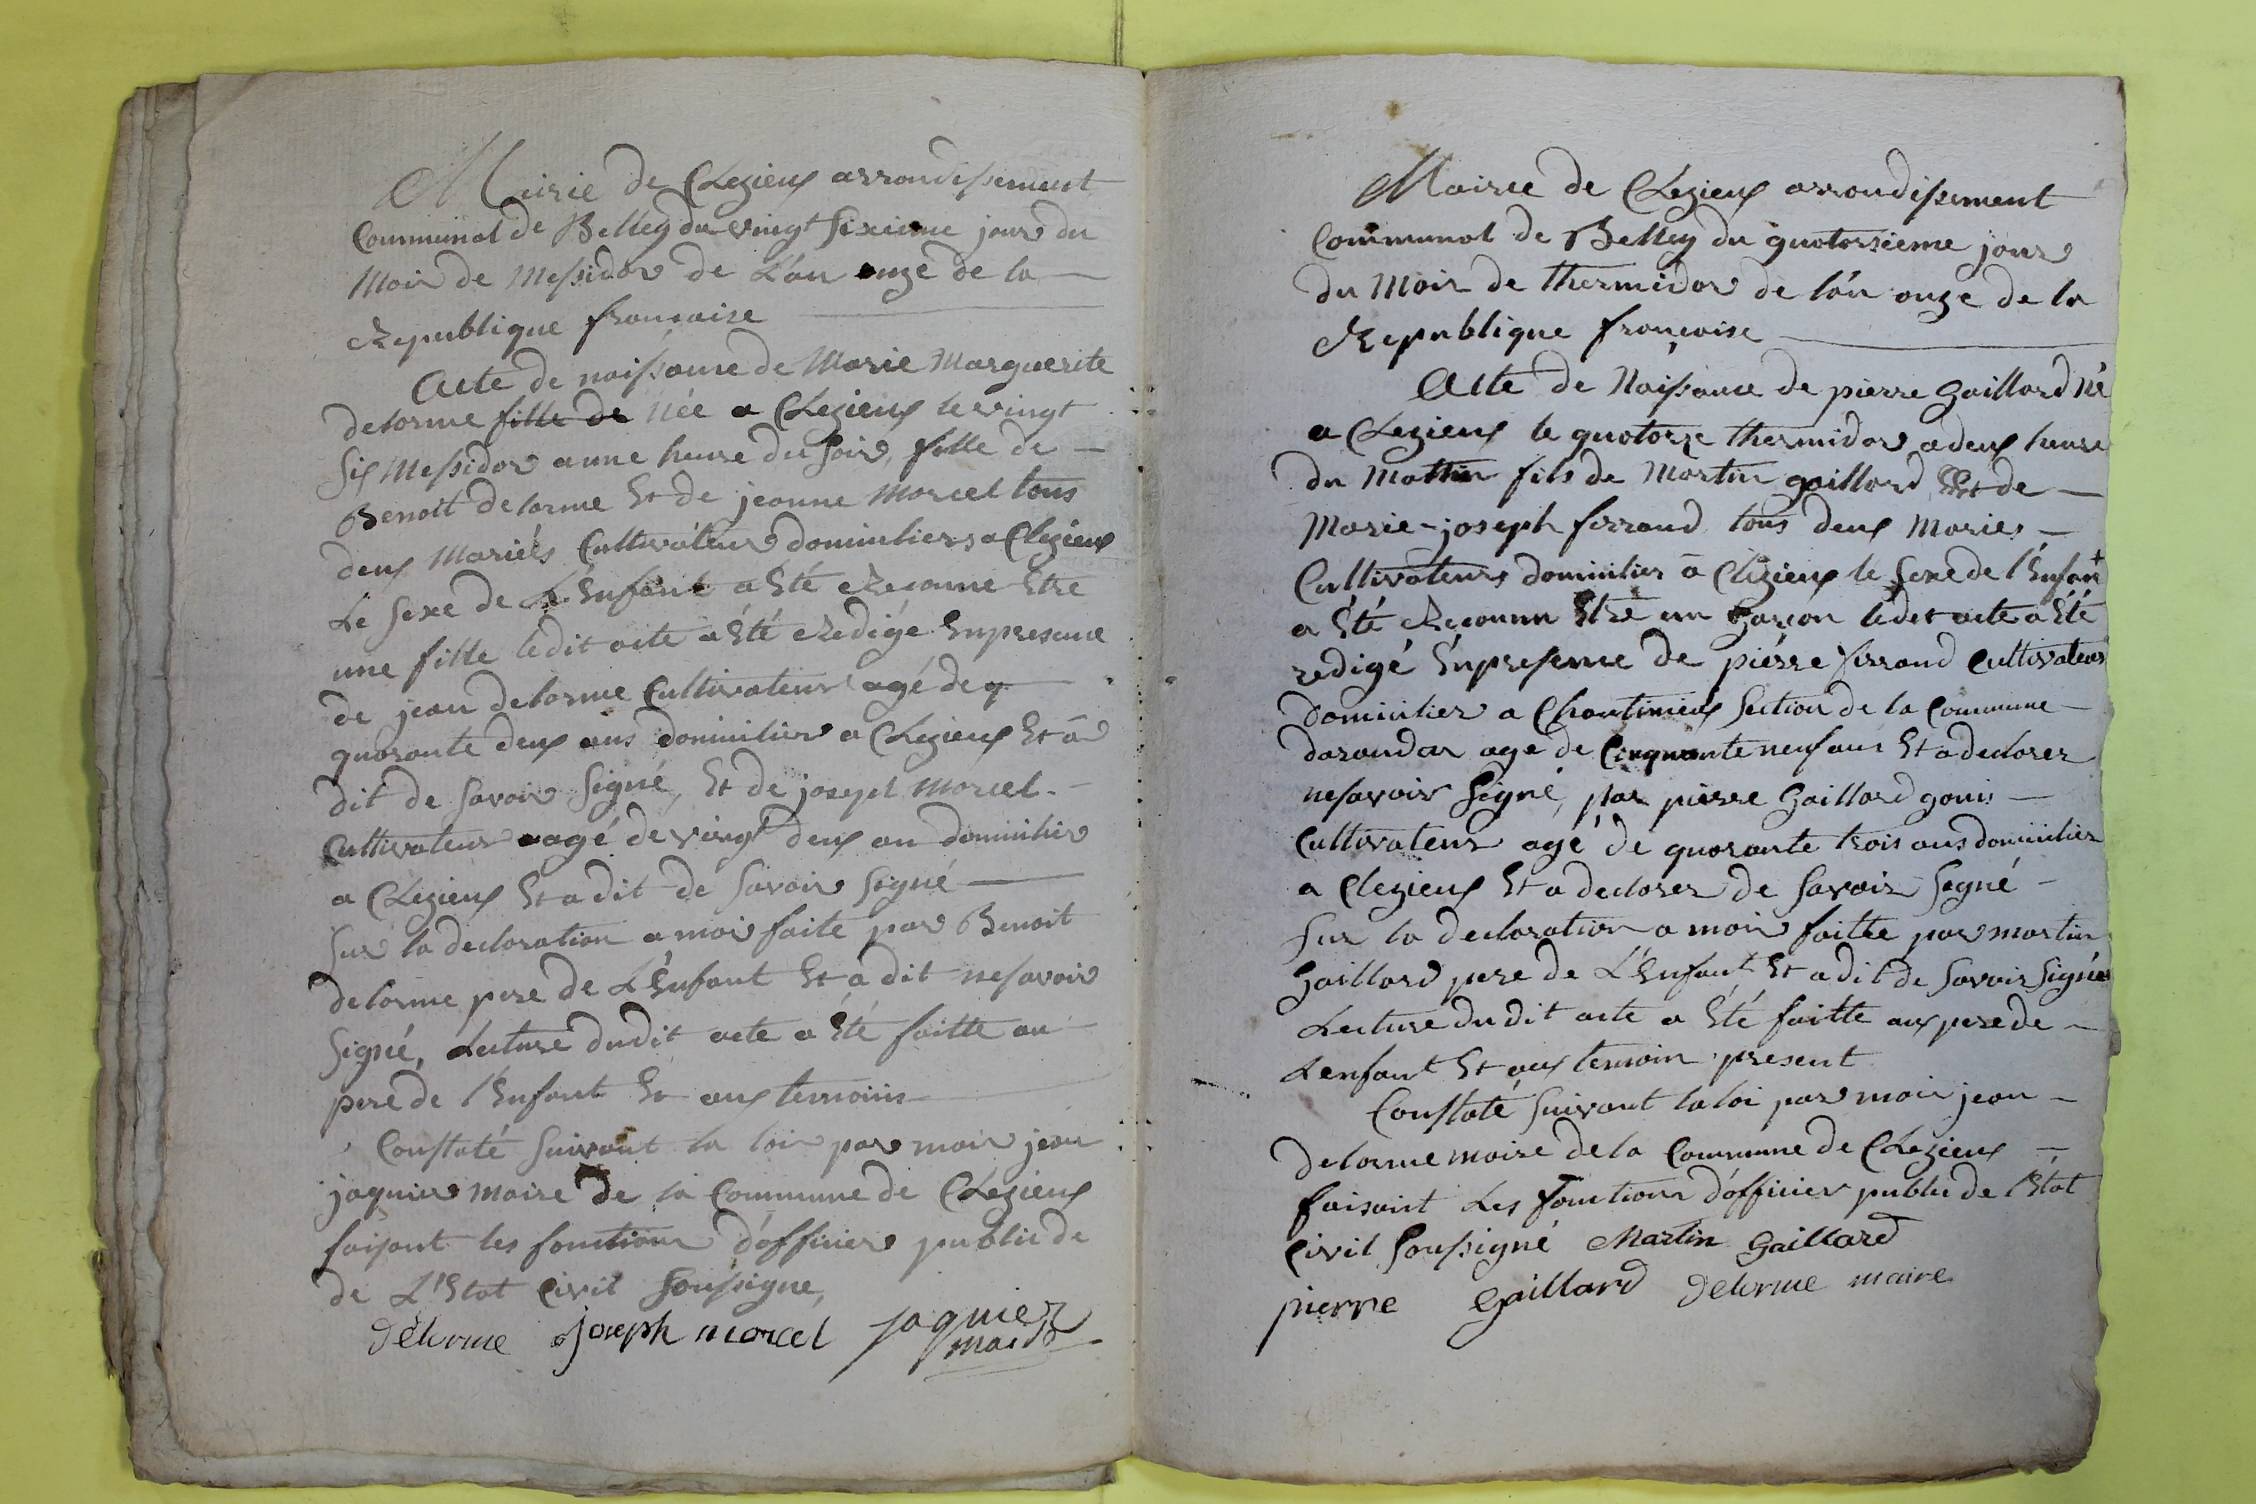 Mairie de Clezieux arrondissement
Communal de Belley du vingt sixieme jour du
Mois de Messidor de L'an onze de la
Republique francaise
Acte de naissance de Marie Marguerite
delorme fille de Née a Clezieux le vingt
six Messidor a une heure du soir, fille de
Benoit delorme Et de jeanne Marcel tous
deux Mariés Cultivateur domicilier a Clezieux
Le sexe de L'Enfant a Eté Reconnu Etre
une fille ledit acte a Eté Redigé En presance
de jean delorme Cultivateur agé de q
quarante deux ans domicilier a Clezieux Et a
dit de savoir Signé, Et de joseph Marcel
Cultivateur agé de vingt deux an domicilier
a Clezieux Et a dit de savoir Signé
Sur la declaration a moi faite par Benoit
delorme pere de L'Enfant Et a dit ne savoir
Signé, Lecture dudit acte a Eté faitte au
pere de l'Enfant Et aux temoins
Constaté suivant la loi par moi jean
jaquier Maire De la Commune de Clezieux
faisant les fonctions d'officier public de
de L'Etat Civil Soussigne,
Delorme joseph marcel jaquier
maire
Mairee de Clezieux arrondissement
Communal de Belley du quatorsieme jour
du Mois de thermidor de l'an onze de la
Republique francaise
Acte de Naissance de pierre Gaillard Né
a Clezieux le quatorze thermidor a deux heure
du Mattin fils de Martin gaillard Et de
Marie-joseph ferrand tous deux Maries
Cultivateurs domicilier a Clezieux le sexe de l'Enfant
a Eté Reconnu Etre un Garcon ledet acte a Eté
redigé En presence de pierre ferrand Cultivateur
Domicilier a Chantimieux Section de la Commune
darandas age de Cinquante neuf ans Et a declarer
ne savoir Signé, par pierre Gaillard gonis
Cultivateur agé de quarante trois ans domicilier
a Clezieux Et a declarer de savoir Segné
Sur la declaration a moi faitte par martin
Gaillard pere de L'Enfant Et a dit de savoir Signé
Lecture du dit acte a Eté faitte aux pere de
L'enfant Et aux temoin present
Constaté suivant la loi par moi jean
delorme maire de la Commune de Clezieux
faisant Les fonctions d'officier public de l'Etat
Civil Soussigné Martin Gaillard
pierre Gaillard Delorme maire